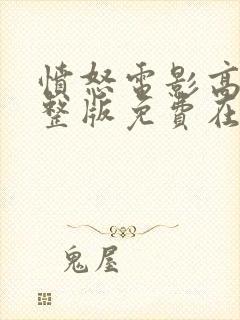 愤怒电影高
整版免費在
鬼屋